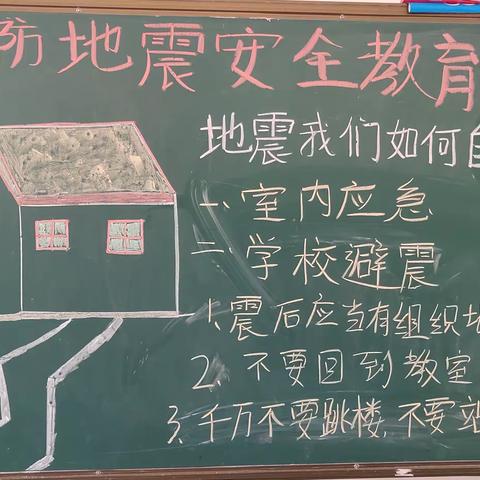 防地震安全教育
地震我们如何自
一、室内应急
二、学校避震
1、震后应当有组织地
2、不要回到教室
3、千万不要跳楼,不要站